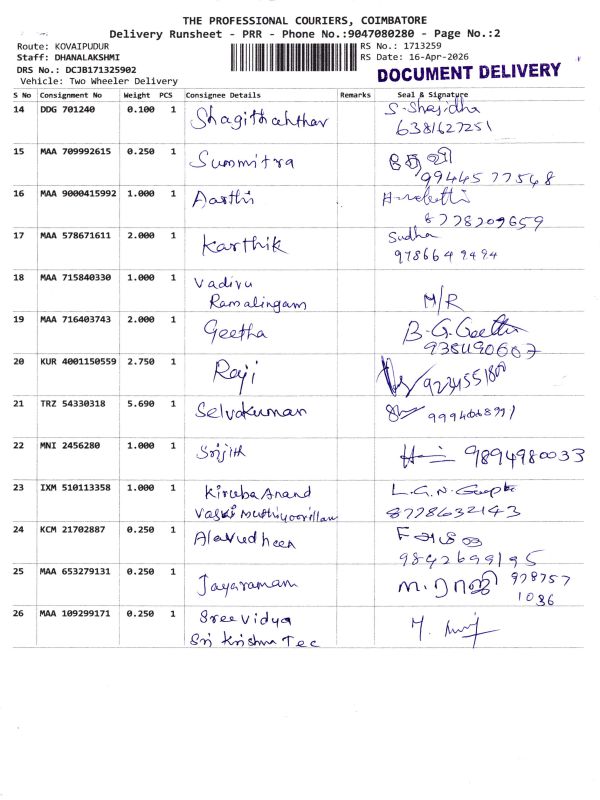 THE PROFESSIONAL COURIERS, COIMBATORE
Delivery Runsheet - PRR - Phone No.:9047080280 - Page No.:2
Route: KOVAIPUDUR RS No.: 1713259
Staff: DHANALAKSHMI RS Date: 16-Apr-2026
DRS No.: DCJB171325902
DOCUMENT DELIVERY
Vehicle: Two Wheeler Delivery
S No Consignment No Weight PCS Consignee Details Remarks Seal & Signature
14 DDG 701240 0.100 1 Shagithahthav S. Shajidha
6381627251
15 MAA 709992615 0.250 1 Summitra தேவி
9944577548
16 MAA 9000415992 1.000 1 Aarthi
8778209659
17 MAA 578671611 2.000 1 Karthik Sudha
9786649494
18 MAA 715840330 1.000 1 Vadivu
Ramalingam M/R
19 MAA 716403743 2.000 1 Geetha B.G.Geetha
20 KUR 4001150559 2.750 1 Raji
21 TRZ 54330318 5.690 1 Selvakumar
22 MNI 2456280 1.000 1 Srijith 9894980033
23 IXM 510113358 1.000 1 Kiruba Anand L.G.N. Gupta
8778632143
24 KCM 21702887 0.250 1 Alavudheen
9842699195
25 MAA 653279131 0.250 1 Jayaraman M. ராஜி 978757
1036
26 MAA 109299171 0.250 1 Sree vidya
Sri Krishna Tec